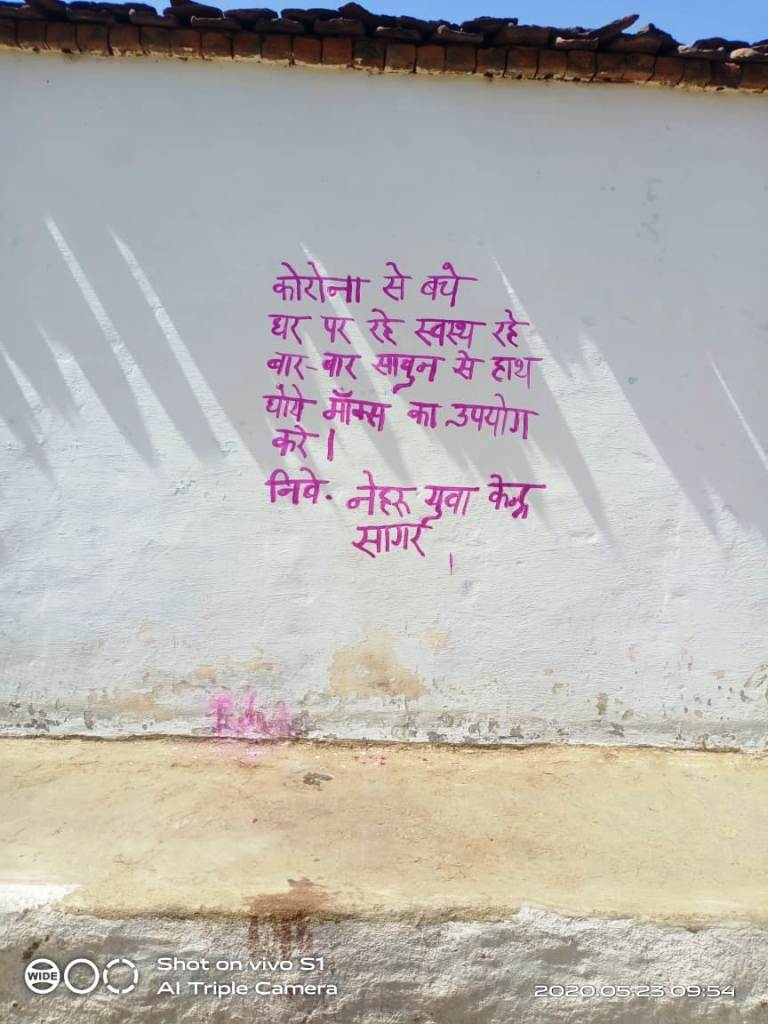 कोरोना से बचे
घर पर रहे स्वस्थ रहे
बार-बार साबुन से हाथ
धोये मॉक्स का उपयोग
करे ।
निवे. नेहरू युवा केन्द्र
सागर
WIDE
Shot on vivo S1
AI Triple Camera
2020.05.23 09:54